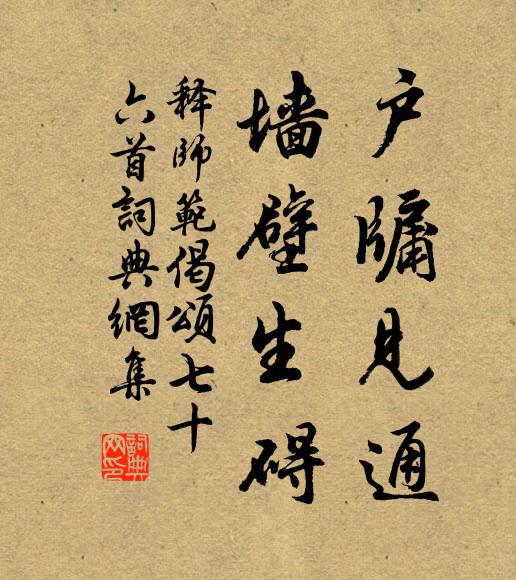 户牖見通
墙壁生碍
释師範偈頌七十
六首詞典網集
詞典
网印